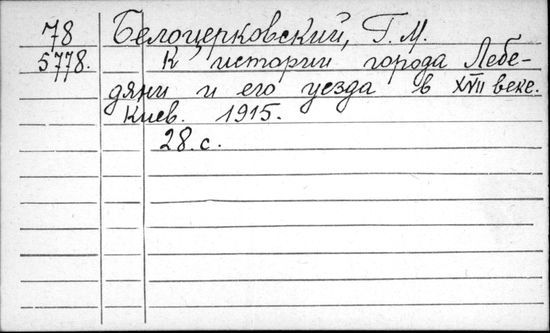 78 Белоцерковский, Г. М.
5778. К истории города Лебе-
дяни и его уезда в XVII веке.
Киев. 1915.
28. с.